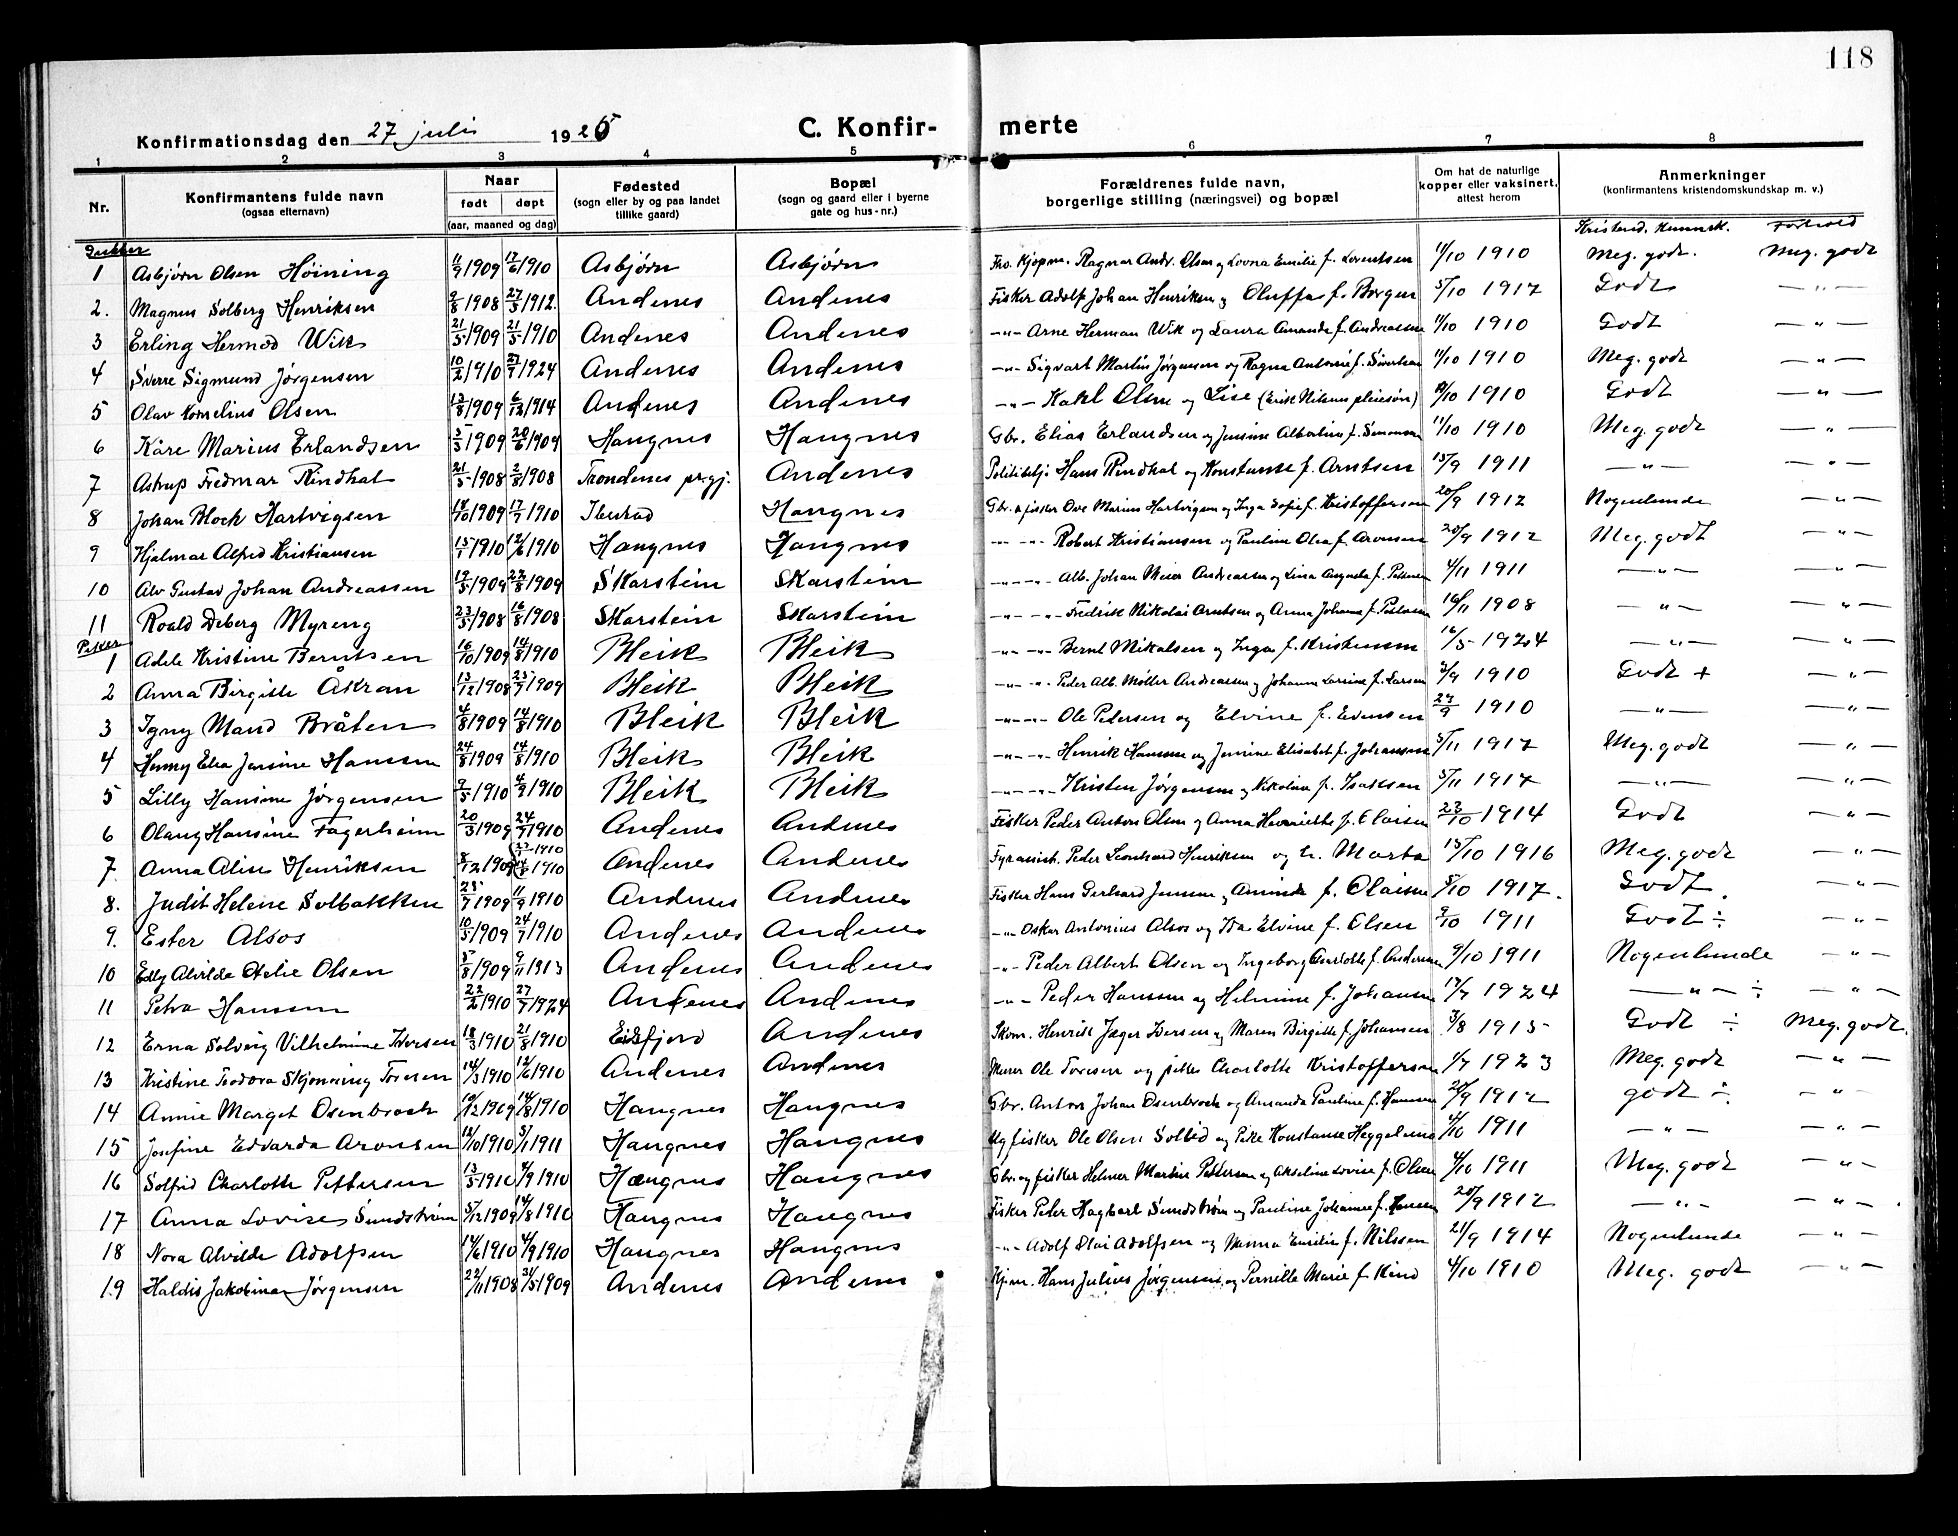 118
Konfirmationsdag den 27 juli 1925
C. Konfirmerte
1 2 3 4 5 6 7 8
Nr.
Konfirmantens fulde navn
(ogsaa efternavn)
Naar
født døpt
(aar, maaned og dag)
Fødested
(sogn eller by og paa landet
tillike gaard)
Bopæl
(sogn og gaard eller i byerne
gate og hus-nr.)
Forældrenes fulde navn,
borgerlige stilling (næringsvei) og bopæl
Om hat de naturlige
kopper eller vaksinert,
attest herom
Anmerkninger
(konfirmantens kristendomskundskap m. v.)
Kristend. kunnsk. Forhold
Gutter
1 Asbjørn Olsen Høining 11/9 1909 17/6 1910 Asbjørn Asbjørn Kjøpm. Ragnar Andr. Olsen og Lovna Emilie f. Lorentsen 11/10 1910 Meg. godt. Meg. godt
2. Magnus Solberg Henriksen 9/8 1908 27/5 1912. Andenes Andenes Fisker Adolf Johan Henriksen og Oluffa f. Borgen 5/10 1917 Godt — " —
3 Erling Hermod Wik 21/3 1909 21/5 1910 Andenes Andenes — " — Arne Herman Wik og Laura Amanda f. Andreassen 11/10 1910 Godt — " —
4 Sverre Sigmund Jørgensen 10/2 1910 27/7 1924 Andenes Andenes — " — Sigvart Martin Jørgensen og Ragna Antonie f. Sivertsen 11/10 1910 Meg. godt — " —
5 Olav Kornelius Olsen 13/8 1909 6/12 1914 Andenes Andenes — " — Karl Olsen og Lise (Erik Nilsens pleiesøn) 1910 Godt — " —
6 Kåre Marius Erlandsen 3/3 1909 20/6 1909 Haugnes Haugnes Gbr. Elias Erlandsen og Jensine Albertine f. Simonsen 11/10 1910 Meg. godt — " —
7 Astrup Fredmar Rindhal 21/5 1908 2/8 1908 Trondenes prgj. Andenes Politibetj. Hans Rindhal og Konstanse f. Arntsen 13/9 1911 — " — — " —
8 Johan Block Hartvigsen 1909 17/7 1910 Ibestad Haugnes Gbr. & fisker Ove Marius Hartvigsen og Inga Sofie f. Kristoffersen 20/9 1912 Nogenlunde — " —
9 Hjalmar Alfred Kristiansen 15/1 1910 12/6 1910 Haugnes Haugnes — " — " — Robert Kristiansen og Pauline Olea f. Aronsen 20/9 1912 Meg. godt — " —
10 Alv Gustav Johan Andreassen 19/5 1909 22/8 1909 Skarstein Skarstein — " — " — Alb. Johan Meier Andreassen og Lina f. Pettersen 4/11 1911 — " — — " —
11 Roald Deberg Myreng 23/5 1908 16/8 1908 Skarstein Skarstein — " — " — Fredrik Nikolai Arntsen og Anna Johanna f. Pedersen 16/11 1908 — " — — " —
Piker
1 Adele Kristine Berntsen 16/10 1909 14/8 1910 Bleik Bleik — " — " — Bernt Mikalsen og Inga f. Kristensen 16/5 1924 — " — — " —
2 Anna Birgitte Åkran 13/12 1908 25/7 1909 Bleik Bleik — " — " — Peder Alb. Møller Andreassen og Johanna Larsine f. Larsen 2/9 1910 Godt + — " —
3 Igny Maud Bråten 4/8 1909 14/8 1910 Bleik Bleik — " — " — Ole Petersen og Elvine f. Evensen 27/9 1910 — " — — " —
4 Henny Elea Jensine Hansen 24/8 1909 14/8 1910 Bleik Bleik — " — " — Henrik Hansen og Jensine Elisabet f. Johansen 5/11 1917 Meg. godt — " —
5 Lilly Hansine Jørgensen 9/5 1910 4/9 1910 Bleik Bleik — " — " — Kristen Jørgensen og Nikoline f. Isaksen 5/11 1917 — " — — " —
6 Olaug Hansine Fagerheim 20/3 1909 24/7 1910 Andenes Andenes Fisker Peder Anton Olsen og Anna Henriette f. Olaisen 22/10 1914 Godt — " —
7. Anna Alise Henriksen 8/12 1909 (23/1 1910 14/8 1910 Andenes Andenes Fyrassist. Peder Leonhard Henriksen og h. Marta 15/10 1916 Meg. godt — " —
8. Judit Helene Solbakken 25/7 1909 11/9 1910 Andenes Andenes Fisker Hans Gerhard Jensen og Aminda f. Olaisen 5/10 1917. Godt — " —
9. Ester Alsos 10/5 1909 24/7 1910 Andenes Andenes — " — Oskar Antonius Alsos og Ida Elvine f. Olsen 9/10 1911 Godt ÷ — " —
10 Edly Alvilde Otelie Olsen 5/8 1909 9/11 1913 Andenes Andenes — " — Peder Albert Olsen og Ingeborg Charlotte f. Andersen 9/10 1911 Nogenlunde — " —
11 Petra Hansen 22/2 1910 27/7 1924 Andenes Andenes — " — Peder Hansen og Helmine f. Johansen 17/7 1924 — " — ÷ — " —
12 Erna Solveig Vilhelmine Iversen 18/3 1910 21/8 1910 Eidsfjord Andenes Skom. Henrik Jæger Iversen og Maren Birgitte f. Johansen 3/8 1915 Godt ÷ Meg. godt.
13 Kristine Teodora Skjønning Toresen 14/3 1910 12/6 1910 Andenes Andenes Murer Ole Toresen og pike Charlotte Kristoffersen 1/7 1923 Meg. godt — " —
14 Annie Marget Osenbroch 19/12 1909 14/8 1910 Haugnes Haugnes Gbr. Anton Johan Osenbroch og Amanda Pauline f. Hansen 20/9 1912 godt ÷ — " —
15 Josefine Edvarda Aronsen 12/10 1910 3/1 1911 Haugnes Haugnes Ug fisker Ole Olsen Solbø og Pike Konstanse Heggelund 4/10 1911 — " — — " —
16 Solfrid Charlotte Pettersen 13/5 1910 4/9 1910 Haugnes Haugnes Gbr. og fisker Helmer Martin Pettersen og Akseline Lovise f. Olsen 4/10 1911 Meg. godt — " —
17 Anna Lovise Sundstrøm 5/12 1909 14/8 1910 Haugnes Haugnes Fisker Peter Hagbart Sundstrøm og Pauline Johanne f. Hansen 20/9 1912 — " — — " —
18 Nora Alvilde Adolfsen 14/6 1910 4/9 1910 Haugnes Haugnes — " — Adolf Olai Adolfsen og Nanna Emilie f. Nilssen 21/9 1914 Nogenlunde — " —
19 Haldis Jakobine Jørgensen 22/11 1908 31/5 1909 Andenes Andenes Kjøm. Hans Julius Jørgensen og Pernille Marie f. Kind 4/10 1910 Meg. godt — " —